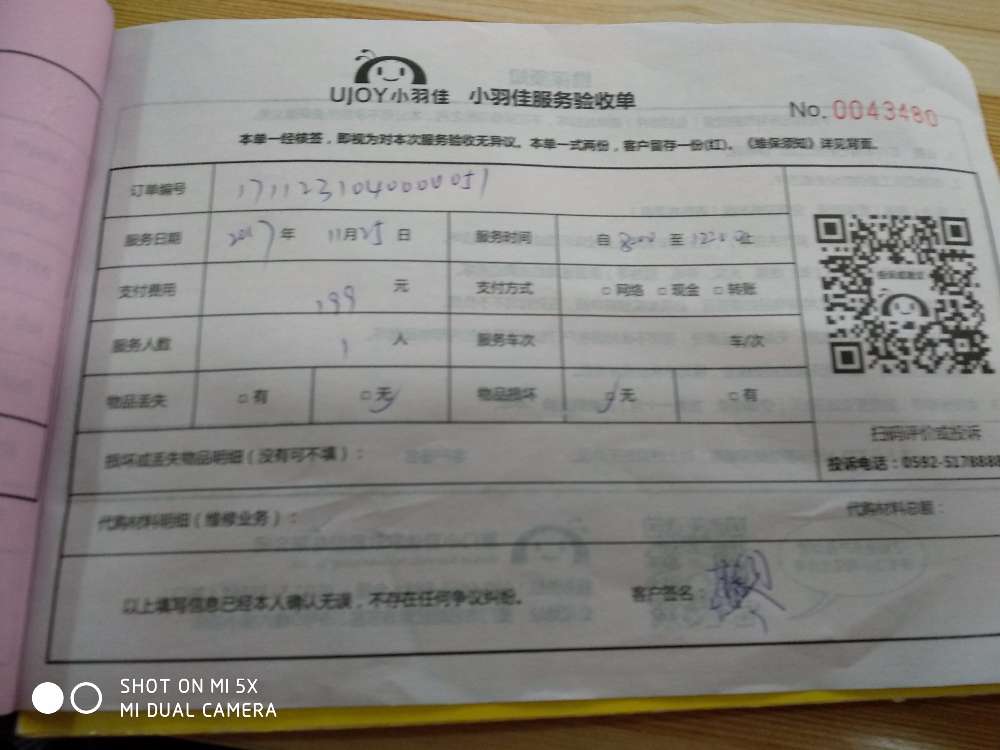 UJOY小羽佳 小羽佳服务验收单
No. 0043480
本单一经核签，即视为对本次服务验收无异议。本单一式两份，客户留存一份(红)。《维保须知》详见背面。
订单编号
服务日期 2017年 11月25日 服务时间 自 至 止
支付费用 199 元 支付方式 □网络 □现金 □转账
服务人数 1 人 服务车次 车/次
物品丢失 □有 □无 物品损坏 □无 □有
扫码评价或投诉
损坏或丢失物品明细（没有可不填）：
投诉电话：0592-5178888
代购材料明细（维修业务）：
代购材料总额：
以上填写信息已经本人确认无误，不存在任何争议纠纷。 客户签名：
SHOT ON MI 5X
MI DUAL CAMERA